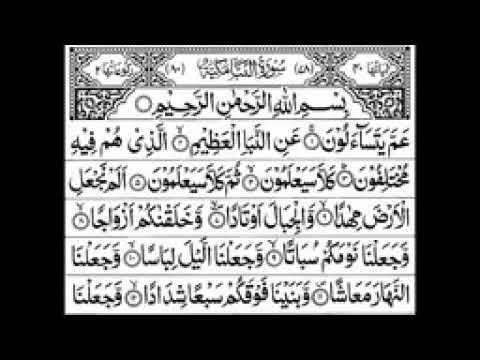 اٰیاتها ۴۰ (۷۸) سُوْرَةُ النَّبَاِ مَكِّيَّةٌ (۸۰) رکوعاتها ۲
بِسْمِ اللّٰهِ الرَّحْمٰنِ الرَّحِيْمِ ○
عَمَّ يَتَسَآءَلُوْنَ ۝۱ عَنِ النَّبَاِ الْعَظِيْمِ ۝۲ الَّذِيْ هُمْ فِيْهِ
مُخْتَلِفُوْنَ ۝۳ كَلَّا سَيَعْلَمُوْنَ ۝۴ ثُمَّ كَلَّا سَيَعْلَمُوْنَ ۝۵ اَلَمْ نَجْعَلِ
الْاَرْضَ مِهٰدًا ۝۶ وَّالْجِبَالَ اَوْتَادًا ۝۷ وَّخَلَقْنٰكُمْ اَزْوَاجًا ۝۸
وَّجَعَلْنَا نَوْمَكُمْ سُبَاتًا ۝۹ وَّجَعَلْنَا الَّيْلَ لِبَاسًا ۝۱۰ وَّجَعَلْنَا
النَّهَارَ مَعَاشًا ۝۱۱ وَّبَنَيْنَا فَوْقَكُمْ سَبْعًا شِدَادًا ۝۱۲ وَّجَعَلْنَا